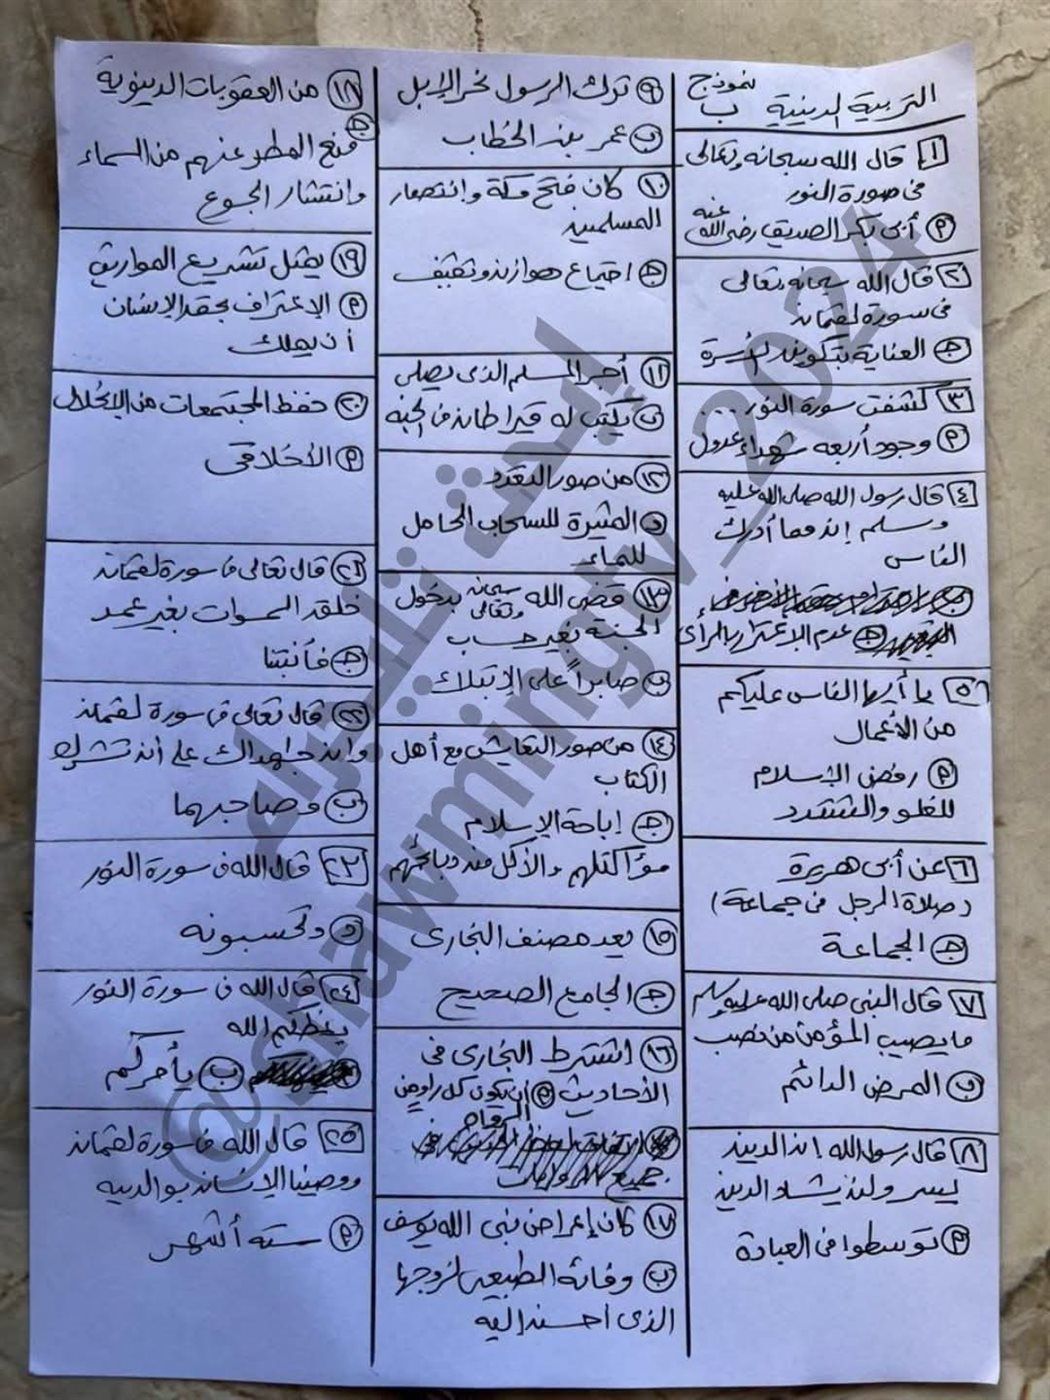 التربية الدينية نموذج ب
١ قال الله سبحانه وتعالى
فى صورة النور
أ أبى بكر الصديق رضى الله عنه
٢ قال الله سبحانه وتعالى
فى سورة لقمان
ج العناية بتكوين الأسرة
٣ كشفت سورة النور ...
أ وجود أربعه شهداء عدول
٤ قال رسول الله صلى الله عليه
وسلم إن مما أدرك
الناس
ج عدم الاعتزار بالرأى
٥ يا أيها الناس عليكم
من الأعمال
أ رفض الإسلام
للغلو والتشدد
٦ عن أبى هريرة
(صلاة الرجل فى جماعة)
ج الجماعة
٧ قال النبى صلى الله عليه وسلم
ما يصيب المؤمن من نصب
ب المرض الدائم
٨ قال رسول الله إن الدين
يسر ولن يشاد الدين
أ توسطوا فى العبادة
٩ ترك الرسول نحر الإبل
ب عمر بن الخطاب
١٠ كان فتح مكة وانتصار
المسلمين
ج اجتماع هوازن وثقيف
١١ أجر المسلم الذى يصلى
ب يكتب له قيراطان فى الجنه
١٢ من صور التعدد
د المثيرة للسحاب الحامل
للماء
١٣ قضى الله سبحانه وتعالى بدخول
الجنة بغير حساب
ب صابراً على الابتلاء
١٤ من صور التعايش مع أهل
الكتاب
ج إباحة الإسلام
مؤاكلتهم والأكل من ذبائحهم
١٥ يعد مصنف البخارى
ج الجامع الصحيح
١٦ اشترط البخارى فى
الأحاديث أ أن يكون كل راو من
الرواه
جميع الروايات
١٧ كان إعراض نبى الله يوسف
ب وفائه الطبيعى لزوجها
الذى أحسن إليه
١٨ من العقوبات الدينوية
ج منع المطر عنهم من السماء
وانتشار الجوع
١٩ يمثل تشريع المواريث
أ الاعتراف بحق الإنسان
أن يملك
٢٠ حفظ المجتمعات من الإنحلال
أ الأخلاقى
٢١ قال تعالى فى سورة لقمان
خلق السموات بغير عمد
ج فأنبتنا
٢٢ قال تعالى فى سورة لقمان
وإن جاهداك على أن تشرك
ب وصاحبهما
٢٣ قال الله فى سورة النور
د وتحسبونه
٢٤ قال الله فى سورة النور
يعظكم الله
ب يأمركم
٢٥ قال الله فى سورة لقمان
ووصينا الإنسان بوالديه
أ سته أشهر
@shawmingtv_2024